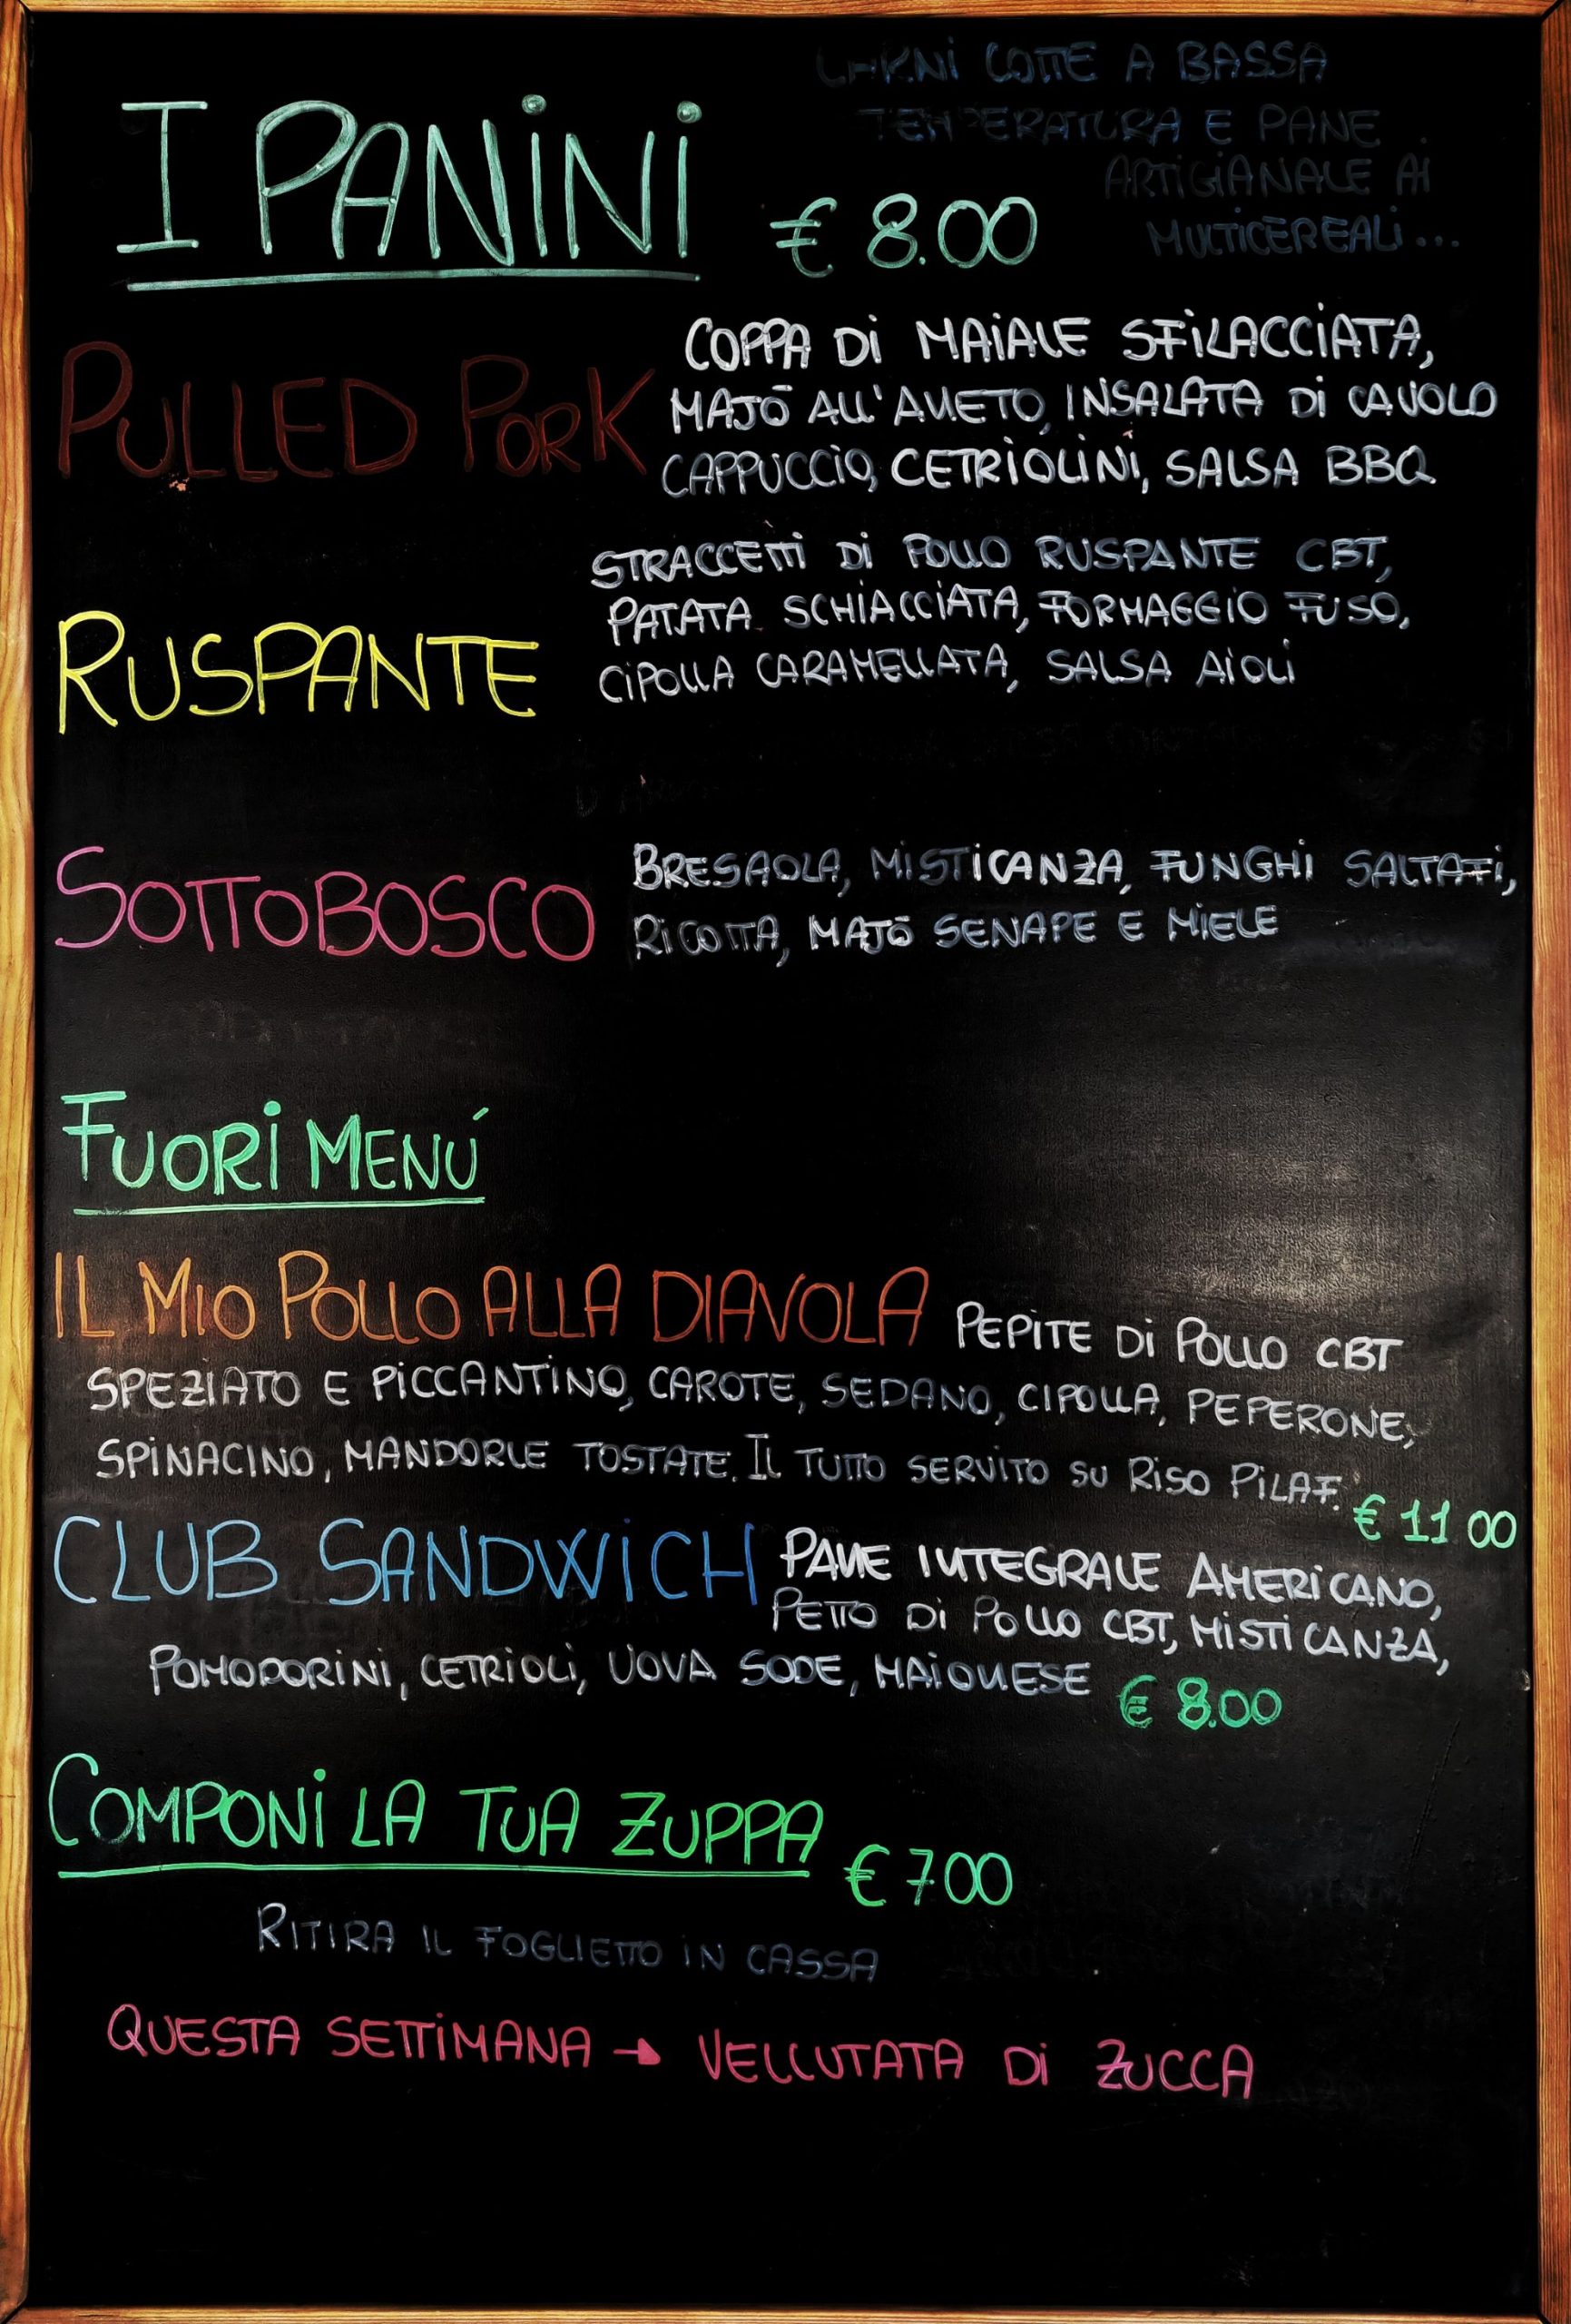 CARNI COTTE A BASSA
TEMPERATURA E PANE
ARTIGIANALE AI
MULTICEREALI...
I PANINI € 8.00
PULLED PORK
COPPA DI MAIALE SFILACCIATA,
MAJO ALL'ANETO, INSALATA DI CAVOLO
CAPPUCCIO, CETRIOLINI, SALSA BBQ
RUSPANTE
STRACCETTI DI POLLO RUSPANTE CBT,
PATATA SCHIACCIATA, FORMAGGIO FUSO,
CIPOLLA CARAMELLATA, SALSA AIOLI
SOTTOBOSCO
BRESAOLA, MISTICANZA, FUNGHI SALTATI,
RICOTTA, MAJO SENAPE E MIELE
FUORI MENÚ
IL MIO POLLO ALLA DIAVOLA PEPITE DI POLLO CBT
SPEZIATO E PICCANTINO, CAROTE, SEDANO, CIPOLLA, PEPERONE,
SPINACINO, MANDORLE TOSTATE. IL TUTTO SERVITO SU RISO PILAF.
€ 11 00
CLUB SANDWICH PANE INTEGRALE AMERICANO,
PETTO DI POLLO CBT, MISTICANZA,
POMODORINI, CETRIOLI, UOVA SODE, MAIONESE € 8.00
COMPONI LA TUA ZUPPA € 700
RITIRA IL FOGLIETTO IN CASSA
QUESTA SETTIMANA → VELLUTATA DI ZUCCA